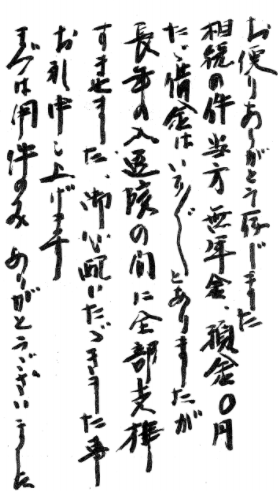 お便りありがとう存じました
相続の件当方無年金、預金0円
たゞ借金はいろ〳〵とありましたが
長年の入退院の間に全部支拂
すませました、御心配いたゞきました事
お礼申し上げます
まづは用件のみ ありがとうございました